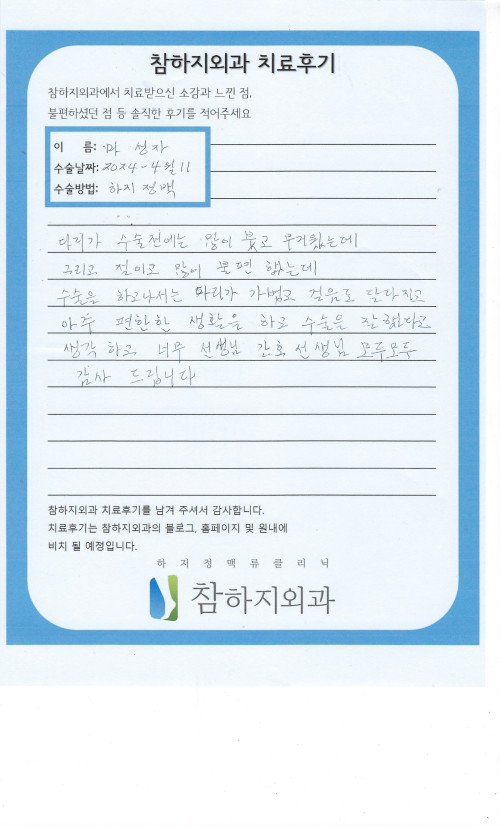 참하지외과 치료후기
참하지외과에서 치료받으신 소감과 느낀 점,
불편하셨던 점 등 솔직한 후기를 적어주세요
이 름: 마 선자
수술날짜: 2024-4월 11
수술방법: 하지 정맥
다리가 수술전에는 많이 붓고 무거웠는데
그리고 절이고 많이 불편 했는데
수술을 하고나서는 다리가 가볍고 걸음도 달라지고
아주 편한한 생활을 하고 수술을 잘했다고
생각 하고 너무 선생님 간호 선생님 모두모두
감사 드립니다
참하지외과 치료후기를 남겨 주셔서 감사합니다.
치료후기는 참하지외과의 블로그, 홈페이지 및 원내에
비치 될 예정입니다.
하지정맥류클리닉
참하지외과